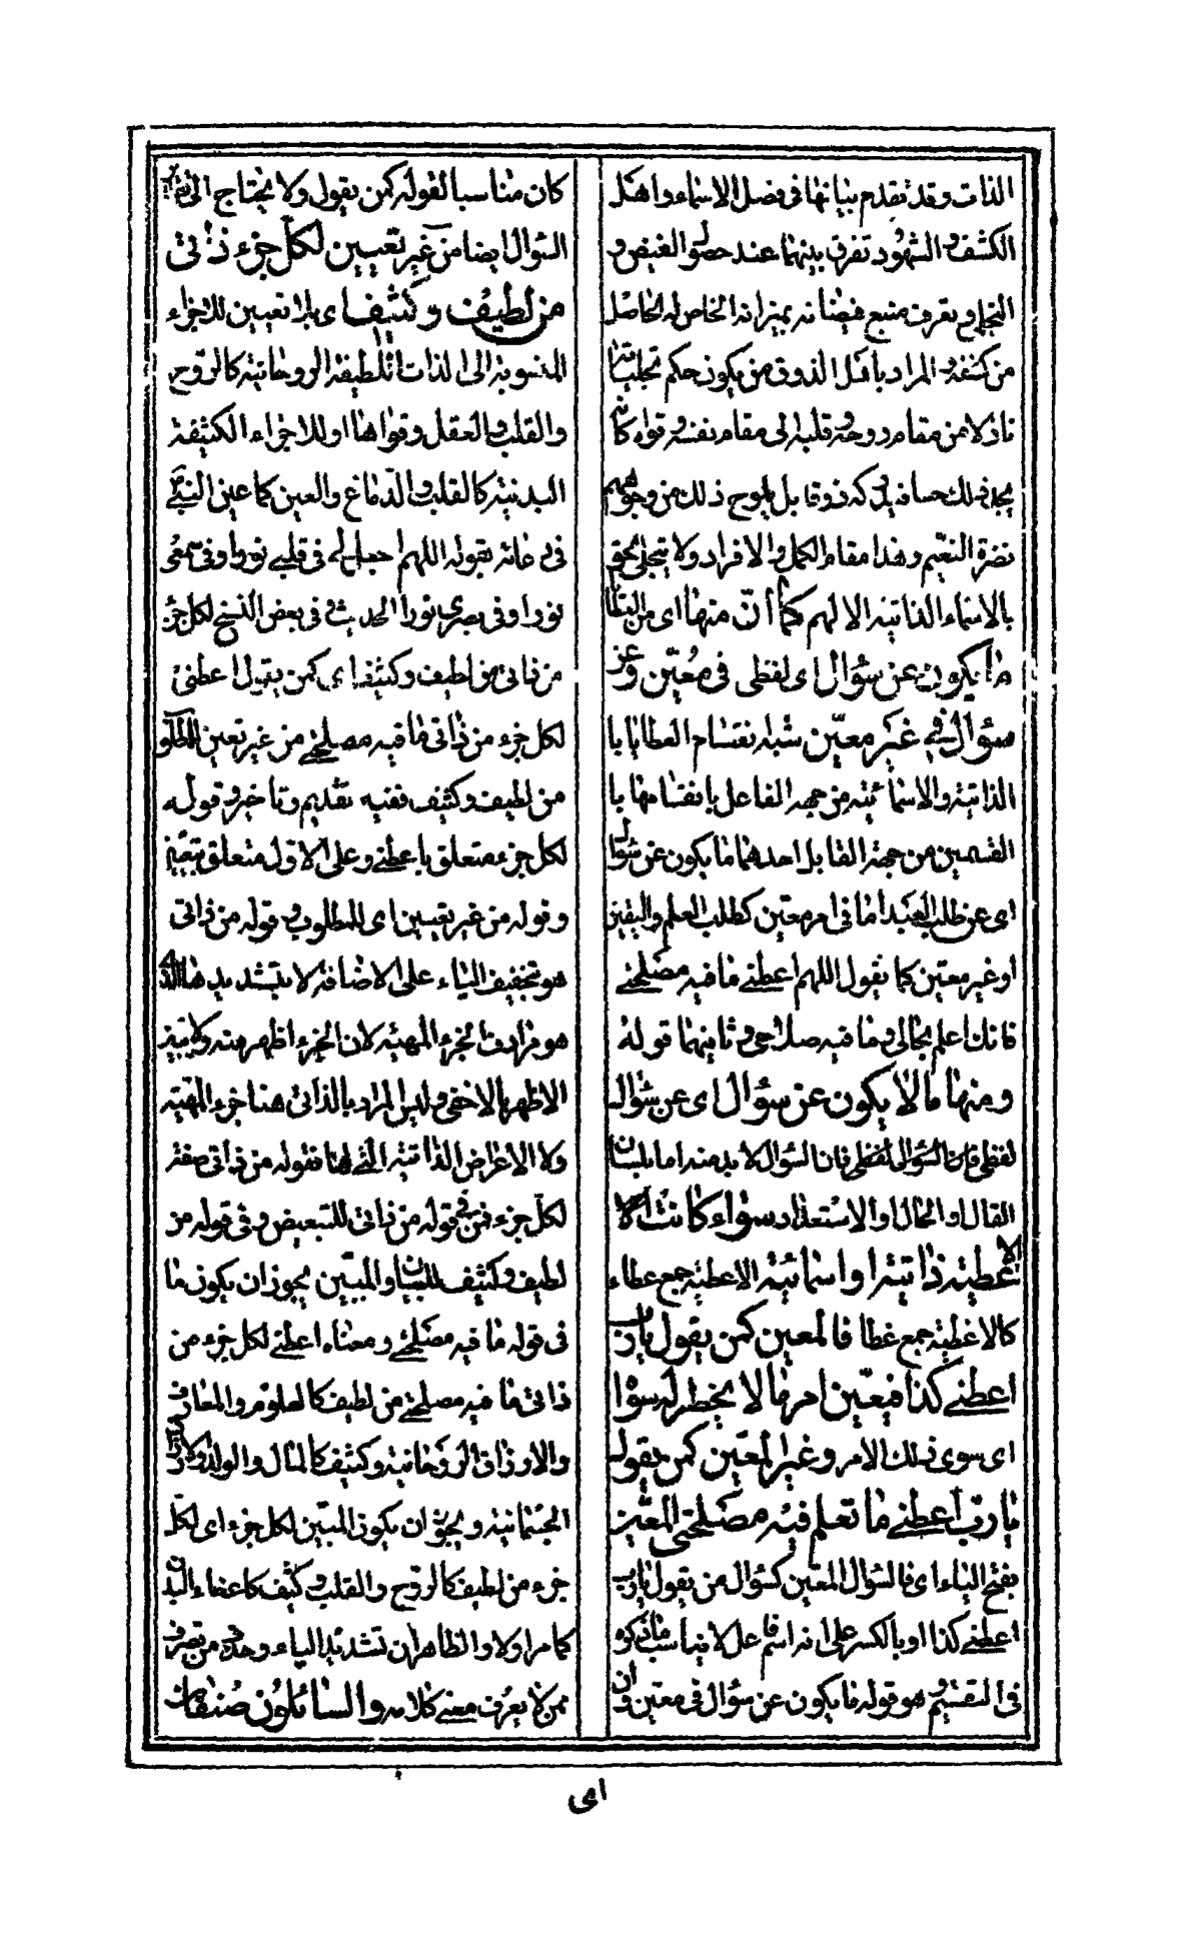 الذات وقد تقدم بيانها فى فصل الاسماء واهل
الكشف والشهود تفرق بينهما عند حصول الفيض و
التجلى وتعرف منبع فيضانه بميزانه الخاص له الحاصل
من كشفه والمراد باهل الذوق من يكون حكم تجلياته
نازلا من مقام روحه وقلبه الى مقام نفسه وقواه كانه
يجد ذلك حسا ويدركه ذوقا بل يلوح ذلك من وجوههم
نضرة النعيم وهذا مقام الكمل والافراد ولا يتجلى الحق
بالاسماء الذاتية الا لهم كما أنّ منها اى من العطايا
ما يكون عن سؤال اى لفظى فى معيّن وعن
سؤال فى غير معيّن شبه انقسام العطايا با
الذاتية والاسمائية من جهة الفاعل بانقسامها با
القسمين من جهة القابل احدهما ما يكون عن سؤال
اى عن طلب العبد اما فى امر معين كطلب العلم واليقين
او غير معين كما يقول اللهم اعطنى ما فيه مصلحتى
فانك اعلم بحالى وما فيه صلاحى وثانيهما قوله
ومنها مالا يكون عن سؤال اى عن سؤال
لفظى فان السؤال لفظى فان السؤال لا بد منه اما بلسان
القال او الحال او الاستعداد سواء كانت الا
الاعطية ذاتية او اسمائية الاعطية جمع عطاء
كالاغطية جمع غطا فالمعين كمن يقول يا رب
اعطنى كذا فيعيّن امرما لا يخطر له سوا
اى سوى ذلك الامر وغير المعيّن كمن يقول
يا ربّ اعطنى ما تعلم فيه مصلحتى المعيّن
بفتح الياء اى فالسؤال المعين كسؤال من يقول يا رب
اعطنى كذا او بالكسر على انه اسم فاعل لا يناسب ما ذكره
فى التقسيم وهو قوله ما يكون عن سؤال فى معين وان
كان مناسبا لقوله كمن يقول ولا يحتاج الى
السؤال ايضا من غير تعيين لكلّ جزء ذاتى
من لطيف وكثيف اى بلا تعيين للاجزاء
المنسوبة الى الذات اللطيفة الروحانية كالروح
والقلب والعقل وقواها او للاجزاء الكثيفة
البدنية كالقلب والدّماغ والعين كما عين النبى
فى دعائه بقوله اللهم اجعل لى فى قلبى نورا وفى سمعى
نورا وفى بصرى نورا الحديث فى بعض النسخ لكل جزء
من ذاتى من لطيف وكثيف اى كمن يقول اعطنى
لكل جزء من ذاتى ما فيه مصلحتى من غير تعين للمطلوب
من لطيف وكثيف ففيه تقديم وتاخير وقوله
لكل جزء متعلق باعطنى وعلى الاول متعلق بتعيّن
وقوله من غير تعيين اى للمطلوب وقوله من ذاتى
هو تخفيف الياء على الاضافة لا بتشديدها الذى
هو مرادف لجزء المهية لان الجزء اظهر منه ولا يبيّن
الاظهر بالاخفى وليس المراد بالذاتى هنا جزء المهية
ولا الاعراض الذاتية التى لها فقوله من ذاتى صفة
لكلّ جزء فمن فى قوله من ذاتى للتبعيض وفى قوله من
لطيف وكثيف للبيان والمبيّن يجوز ان يكون ما
فى قوله ما فيه مصلحتى ومعناه اعطنى لكل جزء من
ذاتى ما فيه مصلحتى من لطيف كالعلوم والمعارف
والارزاق الروحانية وكثيف كالمال والولد والارزاق
الجسمانية ويجوز ان يكون المبيّن لكل جزء اى لكلّ
جزء من لطيف كالروح والقلب وكثيف كاعضاء البدن
كما مر اولا والظاهر ان تشديد الياء وحذف من تصرف
ممن لا يعرف معنى كلامه والسائلون صنفان
اى